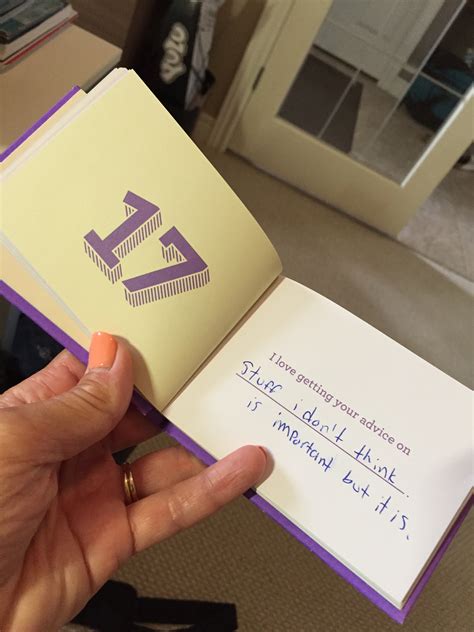 YOLO
17
I love getting your advice on
Stuff i don't think
is important but it is.